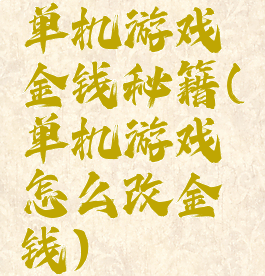 单机游戏
金钱秘籍(
单机游戏
怎么改金
钱)